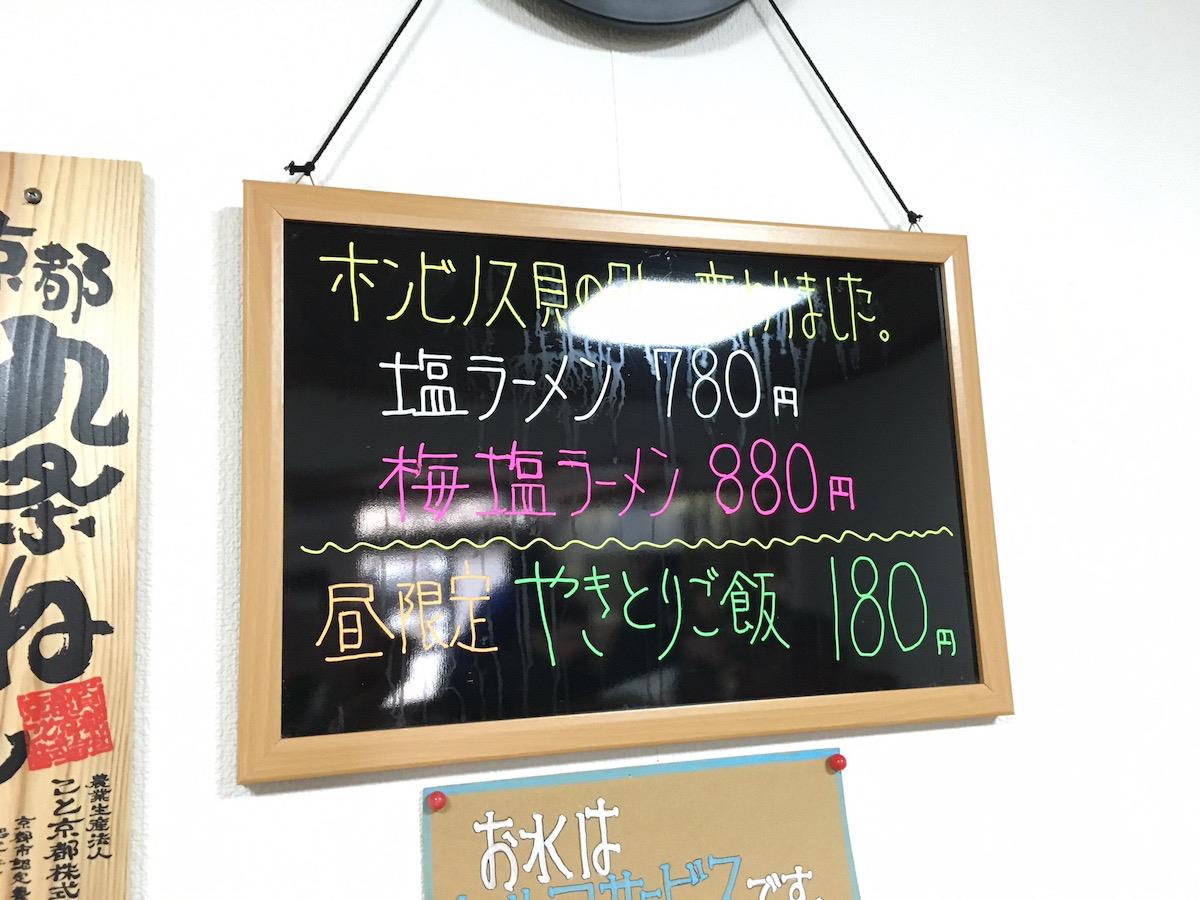 ホンビノス貝の変わりました。
塩ラーメン 780円
梅塩ラーメン 880円
昼限定 やきとりご飯 180円
京都
九条ねぎ
農業生産法人
こと京都株式
お水は
セルフサービスです。